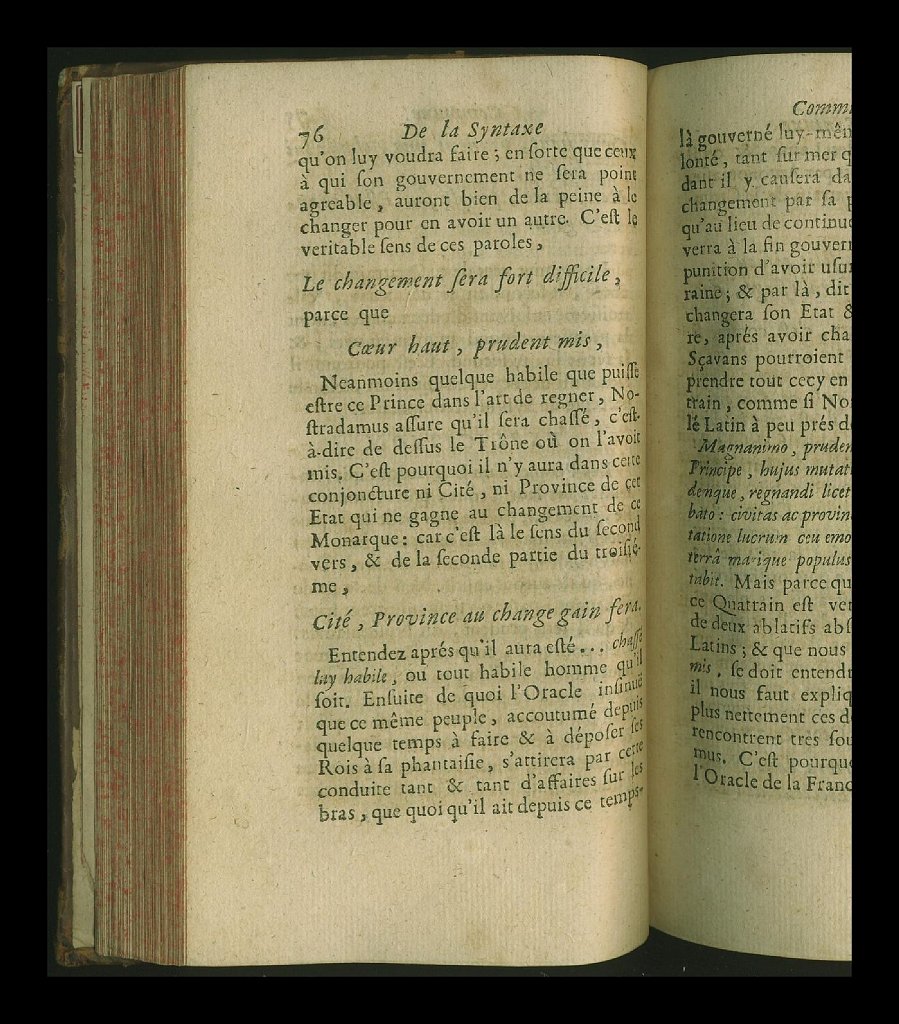 76 De la Syntaxe
qu'on luy voudra faire ; en ſorte que ceux
à qui ſon gouvernement ne ſera point
agreable , auront bien de la peine à le
changer pour en avoir un autre. C'eſt le
veritable ſens de ces paroles ,
Le changement ſera fort difficile ,
parce que
Cœur haut , prudent mis ,
Neanmoins quelque habile que puiſſe
eſtre ce Prince dans l'art de regner , No-
ſtradamus aſſure qu'il ſera chaſſé , c'eſt-
à-dire de deſſus le Trône où on l'avoit
mis. C'eſt pourquoi il n'y aura dans cette
conjoncture ni Cité , ni Province de cet
Etat qui ne gagne au changement de ce
Monarque : car c'eſt là le ſens du ſecond
vers , & de la ſeconde partie du troiſié-
me ,
Cité , Province au change gain fera.
Entendez aprés qu'il aura eſté ... chaſſé
luy habile , ou tout habile homme qu'il
ſoit. Enſuite de quoi l'Oracle inſinuë
que ce même peuple , accoutumé depuis
quelque temps à faire & à dépoſer ſes
Rois à ſa phantaiſie , s'attirera par cette
conduite tant & tant d'affaires ſur les
bras , que quoi qu'il ait depuis ce temps-
Comm
là gouverné luy-mên
lonté , tant ſur mer q
dant il y cauſera da
changement par ſa p
qu'au lieu de continue
verra à la fin gouvern
punition d'avoir uſur
raine ; & par là , dit
changera ſon Etat &
re, aprés avoir cha
Sçavans pourroient
prendre tout cecy en
train , comme ſi No
lé Latin à peu prés d
Magnanimo , pruden
Principe , hujus mutat
denque , regnandi licet
bato : civitas ac provin
tatione lucrum ceu emo
terrâ marique populus
tabit. Mais parce qu
ce Quatrain eſt ver
de deux ablatifs abſ
Latins ; & que nous
mis , ſe doit entend
il nous faut expliq
plus nettement ces d
rencontrent tres ſou
mus. C'eſt pourquo
l'Oracle de la Franc